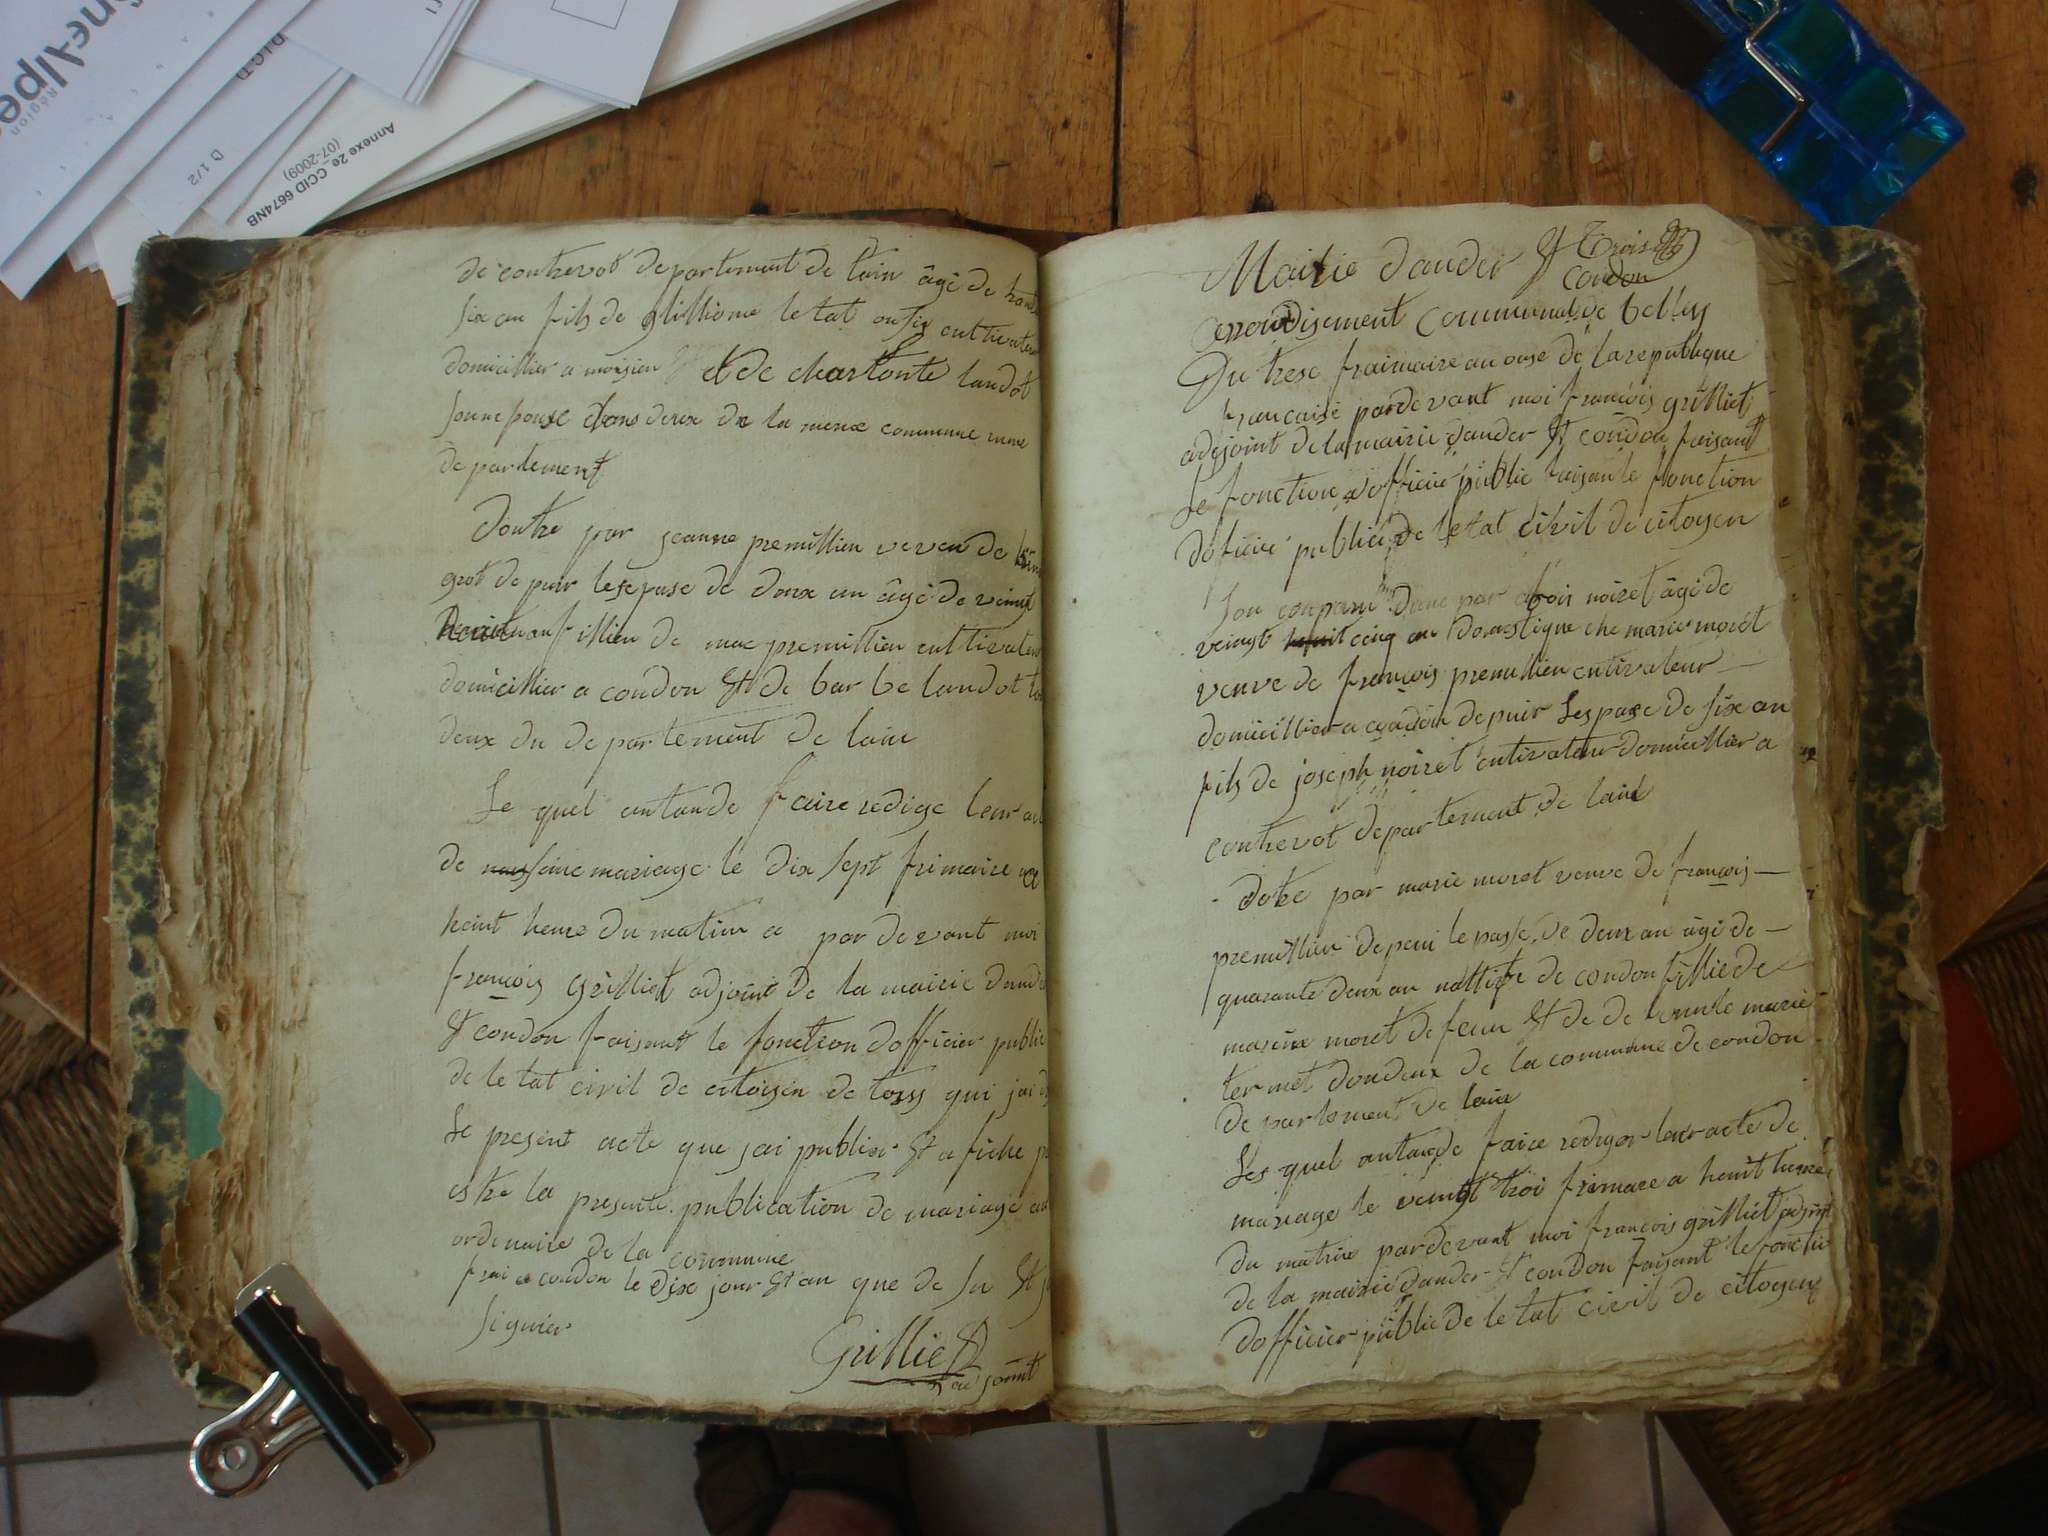 neAlpe
Région
DLCD
D 1/2
Annexe 2e CCID 6674NB
(07-2009)
de contrevot departement de lain âgé de trante
six an fils de gillione letat onsix cultivateur
domicillier a moisieu et de charlonte landot
son nepouse dons deux de la meme commune meme
departement
Doutre par jeanne premillien veveu de
grot de puir lesepase de doux an âgé de veinst
an fillieu de mac premillien cultivateur
domicillier a condon et de barbe landot tou
deux du departement de lain
Le quel antande faire redige leur act
de mariage le dix sept frimaire
heuit heure du matin a par devant moi
françois Grilliet adjoint de la mairie dande
et condon faisant le fonction dofficier public
de letat civil de citoisen de tous qui jai d
le present acte que jai publier et afiche p
estre la presante publication de mariage au
ordenaire de la commune
frai a condon le dix jour et an que de su et j
signier
Grilliet
adjoint
Mairie dander et
condon
arondisement communal de belley
Du tresc fraimaire an onse de larepublique
francaise pardevant moi françois grilliet
adejoint de la mairie dander et condon faisant
le fonction dofficié public faisan le fonction
doficié public de letat civil de citoyen
son conparu dune par noiret âgé de
veinst cinq an domestique che marie moret
veuve de françois premillien cutivateur
domicillier a condon depuir lespase de six an
fils de joseph noiret cutivateur domicillier a
contrevot departement de lain
dotre par marie moret veuve de françois
premillien depeui le passe de deux an âgé de
quarante deux an nattife de condon fillie de
moret defeun et de de marie
termet dondeux de la commune de condon
departement de lain
Les quel antande faire rediger leur acte de
mariage le veingt troi frimare a heuit heure
du matin pardevant moi françois grilliet adjoint
de la mairie dander et condon faisant le fonctio
dofficier public de letat civil de citoyen